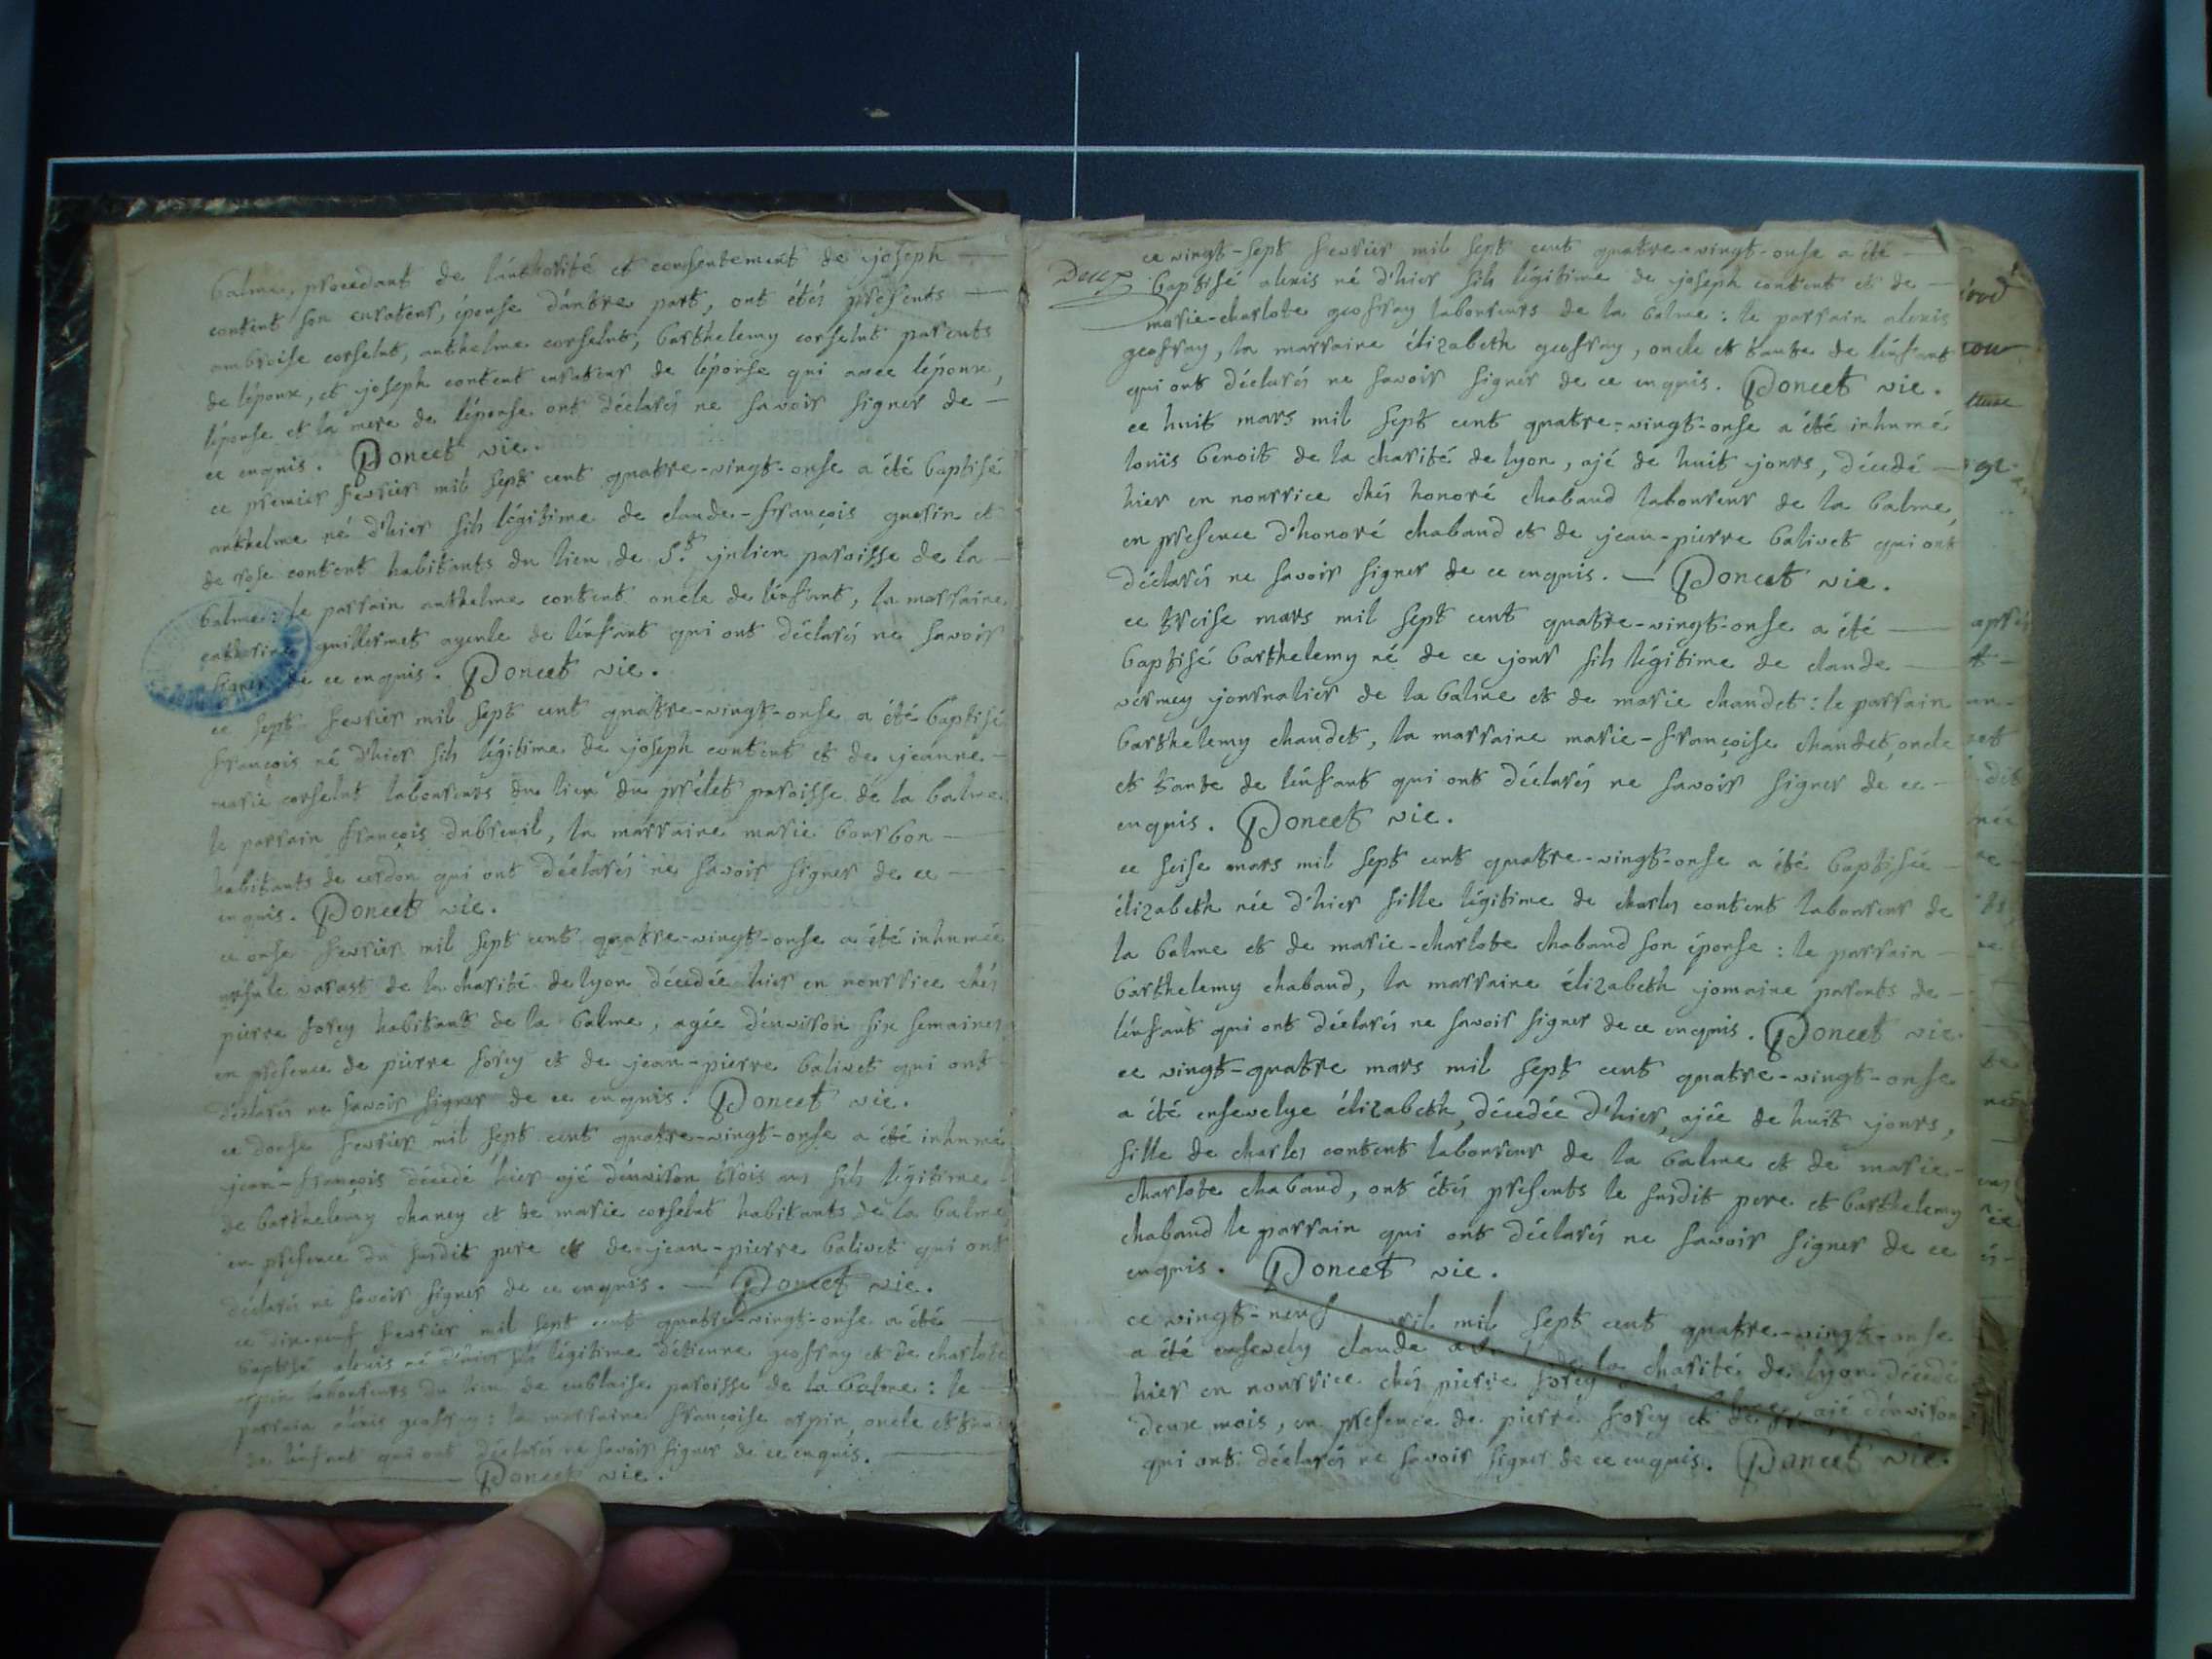 balme, procedant de l'authorité et consentement de joseph
content son curateur, épouse d'autre part, ont étés presents
ambroise corselut, anthelme corselut, barthelemy corselut parents
de l'époux, et joseph content curateur de l'épouse qui avec l'époux,
l'épouse et la mere de l'épouse ont déclarés ne savoir signer de
ce enquis. Poncet vic.
ce premier fevrier mil sept cent quatre-vingt-onse a été baptisé
anthelme né d'hier fils légitime de claude-françois guerin et
de rose content habitants du lieu de St. julien paroisse de la
balme : le parrain anthelme content oncle de l'enfant, la marraine
catherine guillermet ayeule de l'enfant qui ont déclarés ne savoir
signer de ce enquis. Poncet vic.
ce sept fevrier mil sept cent quatre-vingt-onse a été baptisé
françois né d'hier fils légitime de joseph content et de jeanne-
marie corselut laboureurs du lieu du prélet paroisse de la balme
le parrain françois dubreuil, la marraine marie bourbon
habitants de cerdon qui ont déclarés ne savoir signer de ce
enquis. Poncet vic.
ce onse fevrier mil sept cent quatre-vingt-onse a été inhumée
ursule de la charité de lyon décedée hier en nourrice chés
pierre forey habitant de la balme, agée d'environ six semaines
en presence de pierre forey et de jean-pierre balivet qui ont
déclarés ne savoir signer de ce enquis. Poncet vic.
ce douse fevrier mil sept cent quatre-vingt-onse a été inhumé
jean-françois décedé hier ajé d'environ trois ans fils légitime
de barthelemy chaney et de marie corselut habitants de la balme
en presence du susdit pere et de jean-pierre balivet qui ont
déclarés ne savoir signer de ce enquis. — Poncet vic.
ce dix-neuf fevrier mil sept cent quatre-vingt-onse a été
baptisé alexis né d'hier fils légitime d'étienne geofray et de charlote
arpin laboureurs du lieu de paroisse de la balme : le
parrain alexis geofray : la marraine françoise arpin, oncle et tante
de l'enfant qui ont déclarés ne savoir signer de ce enquis.
Poncet vic.
Deux
ce vingt-sept fevrier mil sept cent quatre-vingt-onse a été
baptisé alexis né d'hier fils légitime de joseph content et de
marie-charlote geofray laboureurs de la balme : le parrain alexis
geofray, la marraine élizabeth geofray, oncle et tante de l'enfant
qui ont déclarés ne savoir signer de ce enquis. Poncet vic.
ce huit mars mil sept cent quatre-vingt-onse a été inhumé
louis benoit de la charité de lyon, ajé de huit jours, décedé
hier en nourrice chés honoré chaband laboureur de la balme,
en presence d'honoré chaband et de jean-pierre balivet qui ont
déclarés ne savoir signer de ce enquis. — Poncet vic.
ce treise mars mil sept cent quatre-vingt-onse a été
baptisé barthelemy né de ce jour fils légitime de claude
vermey journalier de la balme et de marie chaudet : le parrain
barthelemy chaudet, la marraine marie-françoise chaudet, oncle
et tante de l'enfant qui ont déclarés ne savoir signer de ce
enquis. Poncet vic.
ce seise mars mil sept cent quatre-vingt-onse a été baptisée
élizabeth née d'hier fille légitime de charles content laboureur de
la balme et de marie-charlote chaband son épouse : le parrain
barthelemy chaband, la marraine élizabeth jomaine parents de
l'enfant qui ont déclarés ne savoir signer de ce enquis. Poncet vic.
ce vingt-quatre mars mil sept cent quatre-vingt-onse
a été ensevelye élizabeth, décedée d'hier, ajée de huit jours,
fille de charles content laboureur de la balme et de marie-
charlote chaband, ont étés presents le susdit pere et barthelemy
chaband le parrain qui ont déclarés ne savoir signer de ce
enquis. Poncet vic.
ce vingt-neuf mil sept cent quatre-vingt-onse
a été ensevely claude de la charité de lyon décedé
hier en nourrice chés pierre forey ajé d'environ
deux mois, en presence de pierre forey et de
qui ont déclarés ne savoir signer de ce enquis. Poncet vic.